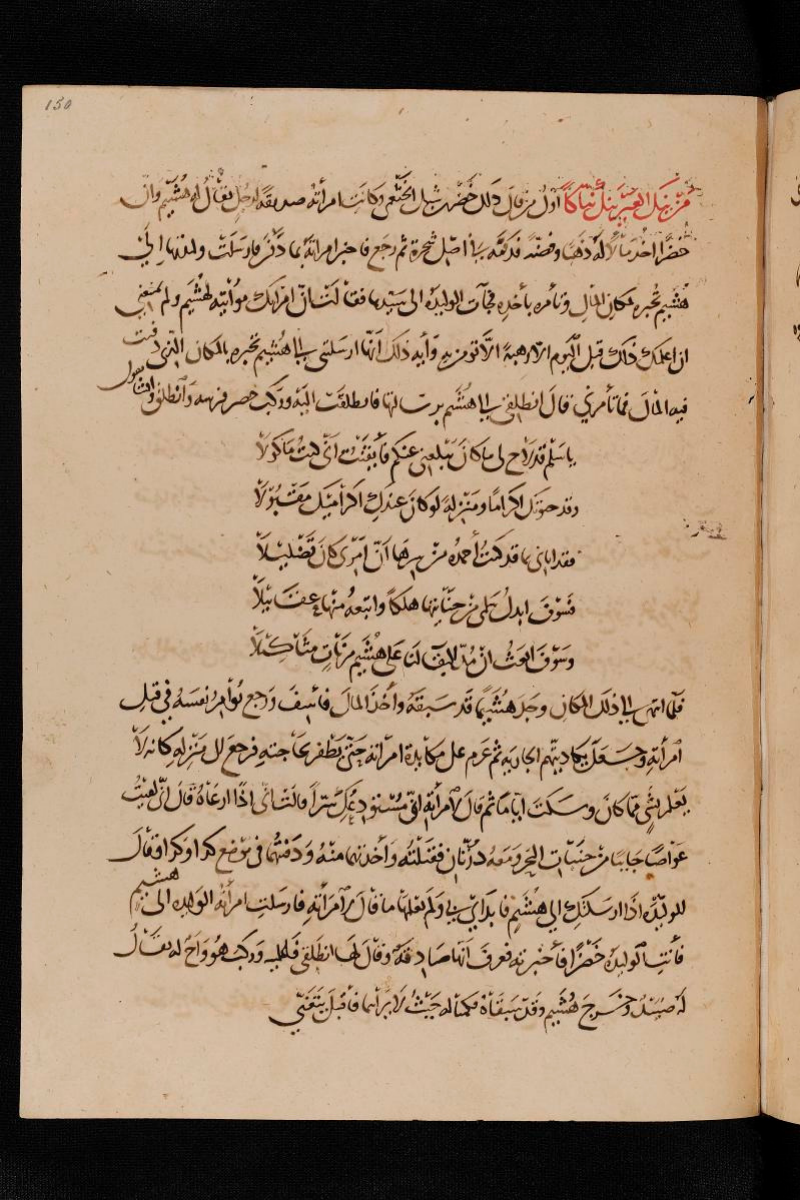 150
مَنْ ينِكِ العَيرَ ينِكْ نيّاكًا أوّلُ من قالَ ذلك خضر بن شبل الخثعمي وكانت امرأته صديقة لرجل يقالُ له هُشَيم وانّ
خُضرًا اخذ مالًا له ذهبا وفضة فدفنه في أصل شجرة ثم رجع فاخبر امرأته بما دَفَن فارسَلَتْ وليدتها إلى
هُشَيم تخبره بمكان المال وتأمره بأخذه فجآت الوليدة الى سَيّدها فقالت انّ امرأتك مؤاتية لهشَيم ولم يمنعني
ان اعلمك ذاك قبل اليوم الا رهبة الا تؤمن به وآية ذلك انّها ارسلتني الى هُشيم تخبره بالمكان الّذى دفنت
فيه المالَ فما تأمرني قالَ انطلقي الى هشَيم برسالتها فانطلقت اليه وركب خضر فرسه وَانْطلق وانشأ يقول
يا سَلم قد لَاح لي ما كانَ يَبلغني عنكم فأيقنتُ أنّي كنتُ مَأكولَا
وقد حبوتك اكرامًا ومَنزلةً لو كانَ عندك اكرامِيك مَقبُولَا
فقد اتاني بما قد كنتُ أحمدُه من سرها انّ امْرى كانَ تَضليلَا
فسَوفَ ابدل خلي من خيانتها هلكًا واتبعه منها عقابيلَا
وسَوفَ ابعث ان مدّ البقاء لنا على هُشيم مرنّات مثاكيلَا
فلمّا انتهى الى ذلك المكان وجد هُشَيمًا قد سبقهُ وأخذ المالَ فأسِفَ ورجع يؤامرُ نفسَهُ في قتل
امرأتهِ وجَعَلَ يكاد يتّهم الجارية ثم عزم على مكايدة امرأته حَتّى يَظفر بحَاجته فرجعَ الى منزله كأنه لا
يَعْلم بشيء ممّا كانَ وسكت ايّاما ثم قالَ لامرأته اني مُستودعك سرًّا قالت انّي اذًا ارعَاهُ قالَ اني لقيتُ
غواصًا جايبا من جنبَات البحر ومعه دُرّتانِ فقتلته وأخذتهما منهُ ودَفنتهُما في موضع كذا وكذا وقالَ
للوليدة اذا ارسلتك الي هُشَيم فابدأي بي ولَم يعلمها ما قالَ لامرأته فارسَلتِ امرأتهُ الوليدة الى هشيم
فأتتِ الوليدة خَضرًا فأخبرته فعرفَ انّها صَادقة وقالَ لها انطلقي فلحقيه وركبَ هُو وأخٌ له يقَالُ
لَه صيند وخرجَ هُشيم وقد سَبقاهُ فكمنا له حَيثُ لا يراهما فأقبلَ يتَغَنّي